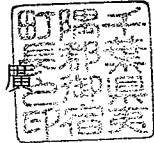 千葉県夷
隅郡御宿
町長之印
廣